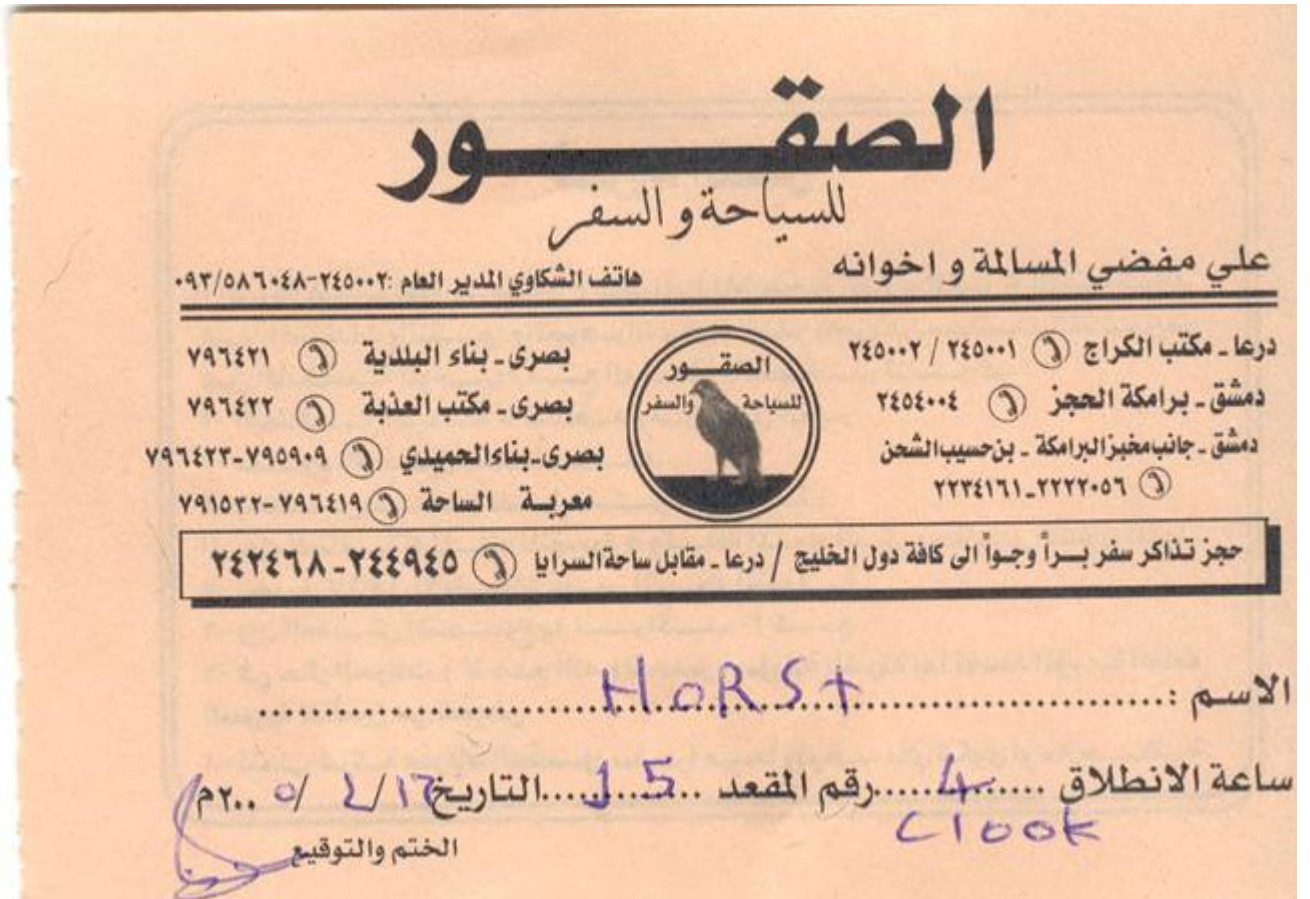 الصقور
للسياحة و السفر
علي مفضي المسالمة و اخوانه
هاتف الشكاوي المدير العام :٢٤٥٠٠٢-٠٩٣/٥٨٦٠٤٨
درعا ـ مكتب الكراج ٢٤٥٠٠١ / ٢٤٥٠٠٢
دمشق ـ برامكة الحجز ٢٤٥٤٠٠٤
دمشق ـ جانب مخبز البرامكة ـ بن حسيب الشحن
٢٢٢٢٠٥٦ـ٢٢٣٤١٦١
الصقور
للسياحة والسفر
بصرى ـ بناء البلدية ٧٩٦٤٢١
بصرى ـ مكتب العذبة ٧٩٦٤٢٢
بصرى ـ بناء الحميدي ٧٩٥٩٠٩-٧٩٦٤٢٣
معربة الساحة ٧٩٦٤١٩-٧٩١٥٣٢
حجز تذاكر سفر براً وجواً الى كافة دول الخليج / درعا ـ مقابل ساحة السرايا ٢٤٤٩٤٥ - ٢٤٢٤٦٨
الاسم : HORST
ساعة الانطلاق 4 رقم المقعد 15 التاريخ / / ٢٠٠م
Clook
الختم والتوقيع